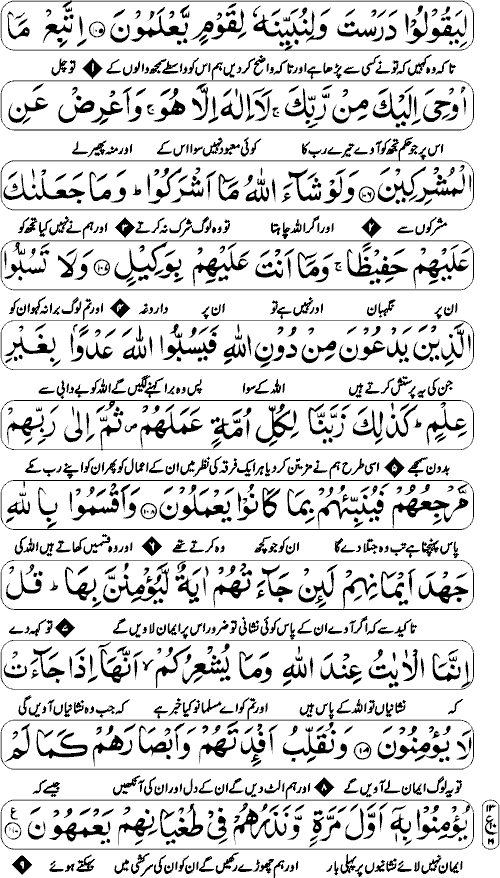 لِيَقُوْلُوْا دَرَسْتَ وَلِنُبَيِّنَهٗ لِقَوْمٍ يَّعْلَمُوْنَ ۝۱۰۵ اِتَّبِعْ مَآ
تاکہ وہ کہیں کہ تونے کسی سے پڑھا ہے اور تاکہ واضح کر دیں ہم اس کو واسطے سمجھ والوں کے ۱ تو چل
اُوْحِيَ اِلَيْكَ مِنْ رَّبِّكَ ۚ لَآ اِلٰهَ اِلَّا هُوَ ۚ وَاَعْرِضْ عَنِ
اس پر جو حکم تجھ کو آوے تیرے رب کا کوئی معبود نہیں سوا اس کے اور منہ پھیر لے
الْمُشْرِكِيْنَ ۝۱۰۶ وَلَوْ شَآءَ اللّٰهُ مَآ اَشْرَكُوْا ؕ وَمَا جَعَلْنٰكَ
مشرکوں سے ۲ اور اگر اللہ چاہتا تو وہ لوگ شرک نہ کرتے ۳ اور ہم نے نہیں کیا تجھ کو
عَلَيْهِمْ حَفِيْظًا ۚ وَمَآ اَنْتَ عَلَيْهِمْ بِوَكِيْلٍ ۝۱۰۷ وَلَا تَسُبُّوا
ان پر نگہبان اور نہیں ہے تو ان پر داروغہ ۴ اور تم لوگ برا نہ کہو ان کو
الَّذِيْنَ يَدْعُوْنَ مِنْ دُوْنِ اللّٰهِ فَيَسُبُّوا اللّٰهَ عَدْوًاۢ بِغَيْرِ
جن کی یہ پرستش کرتے ہیں اللہ کے سوا پس وہ برا کہنے لگیں گے اللہ کو بے ادبی سے
عِلْمٍ ؕ كَذٰلِكَ زَيَّنَّا لِكُلِّ اُمَّةٍ عَمَلَهُمْ ۪ ثُمَّ اِلٰى رَبِّهِمْ
بدون سمجھے ۵ اسی طرح ہم نے مزین کر دیا ہر ایک فرقہ کی نظر میں ان کے اعمال کو پھر ان کو اپنے رب کے
مَّرْجِعُهُمْ فَيُنَبِّئُهُمْ بِمَا كَانُوْا يَعْمَلُوْنَ ۝۱۰۸ وَاَقْسَمُوْا بِاللّٰهِ
پاس پہنچنا ہے تب وہ جتلا دے گا ان کو جو کچھ وہ کرتے تھے ۶ اور وہ قسمیں کھاتے ہیں اللہ کی
جَهْدَ اَيْمَانِهِمْ لَئِنْ جَآءَتْهُمْ اٰيَةٌ لَّيُؤْمِنُنَّ بِهَا ؕ قُلْ
تاکید سے کہ اگر آوے ان کے پاس کوئی نشانی تو ضرور اس پر ایمان لاویں گے ۷ تو کہہ دے
اِنَّمَا الْاٰيٰتُ عِنْدَ اللّٰهِ وَمَا يُشْعِرُكُمْ ۙ اَنَّهَآ اِذَا جَآءَتْ
کہ نشانیاں تو اللہ کے پاس ہیں اور تم کو اے مسلمانو کیا خبر ہے کہ جب وہ نشانیاں آویں گی
لَا يُؤْمِنُوْنَ ۝۱۰۹ وَنُقَلِّبُ اَفْـِٕدَتَهُمْ وَاَبْصَارَهُمْ كَمَا لَمْ
تو یہ لوگ ایمان لے آویں گے ۸ اور ہم الٹ دیں گے ان کے دل اور ان کی آنکھیں جیسے کہ
يُؤْمِنُوْا بِهٖٓ اَوَّلَ مَرَّةٍ وَّنَذَرُهُمْ فِيْ طُغْيَانِهِمْ يَعْمَهُوْنَ ۝۱۱۰
ایمان نہیں لائے نشانیوں پر پہلی بار اور ہم چھوڑے رکھیں گے ان کو ان کی سرکشی میں بہکتے ہوئے ۹